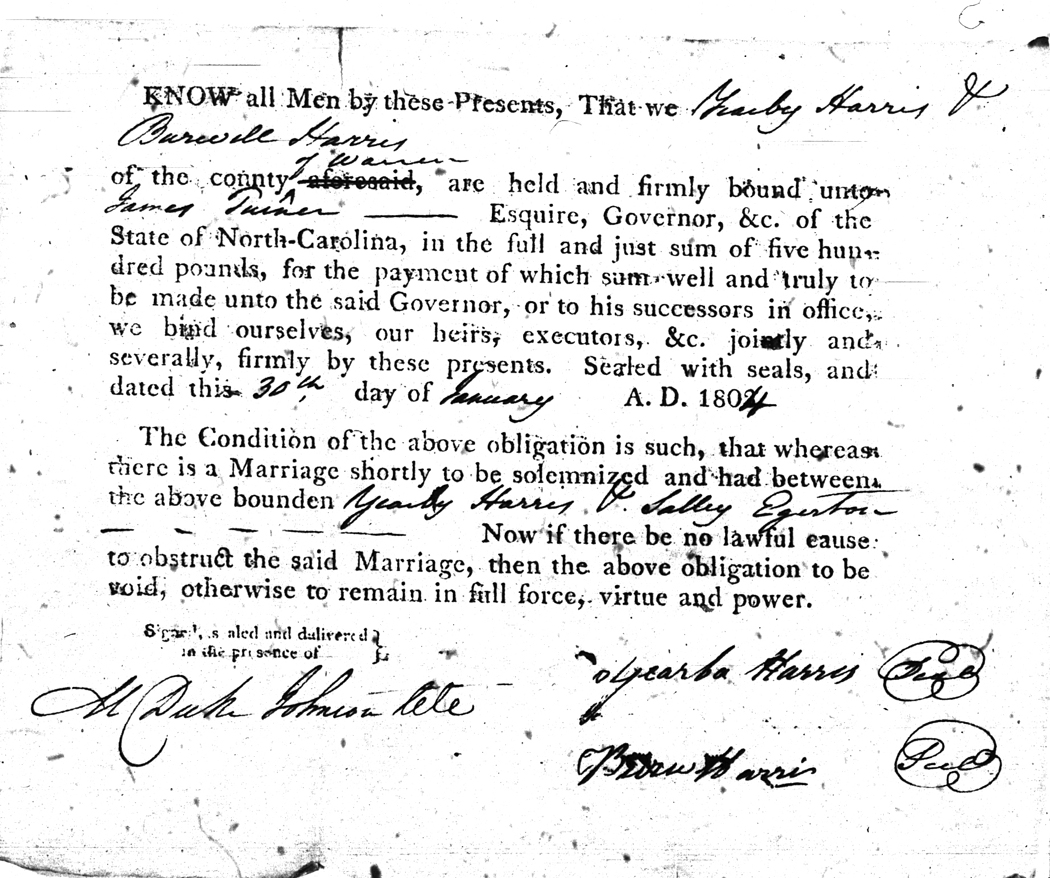 KNOW all Men by these Presents, That we Yearby Harris &
Burwell Harris
of Warren
of the county aforesaid, are held and firmly bound unto
James Turner Esquire, Governor, &c. of the
State of North-Carolina, in the full and just sum of five hun-
dred pounds, for the payment of which sum well and truly to
be made unto the said Governor, or to his successors in office,
we bind ourselves, our heirs, executors, &c. jointly and
severally, firmly by these presents. Sealed with seals, and
dated this 30th day of January A. D. 1804
The Condition of the above obligation is such, that whereas
there is a Marriage shortly to be solemnized and had between
the above bounden Yearby Harris & Salley Egerton
Now if there be no lawful cause
to obstruct the said Marriage, then the above obligation to be
void, otherwise to remain in full force, virtue and power.
Signed, sealed and delivered }
in the presence of }
Yearba Harris Seal
M Duke Johnson
Harris Seal